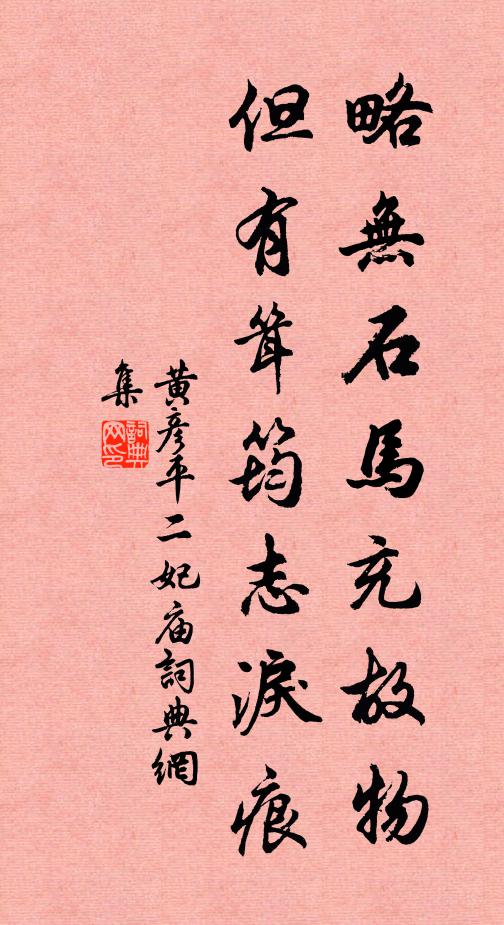 略無石馬充故物
但有箵筠志淚痕
黄彦平二妃庙詞典網
集
詞典网印